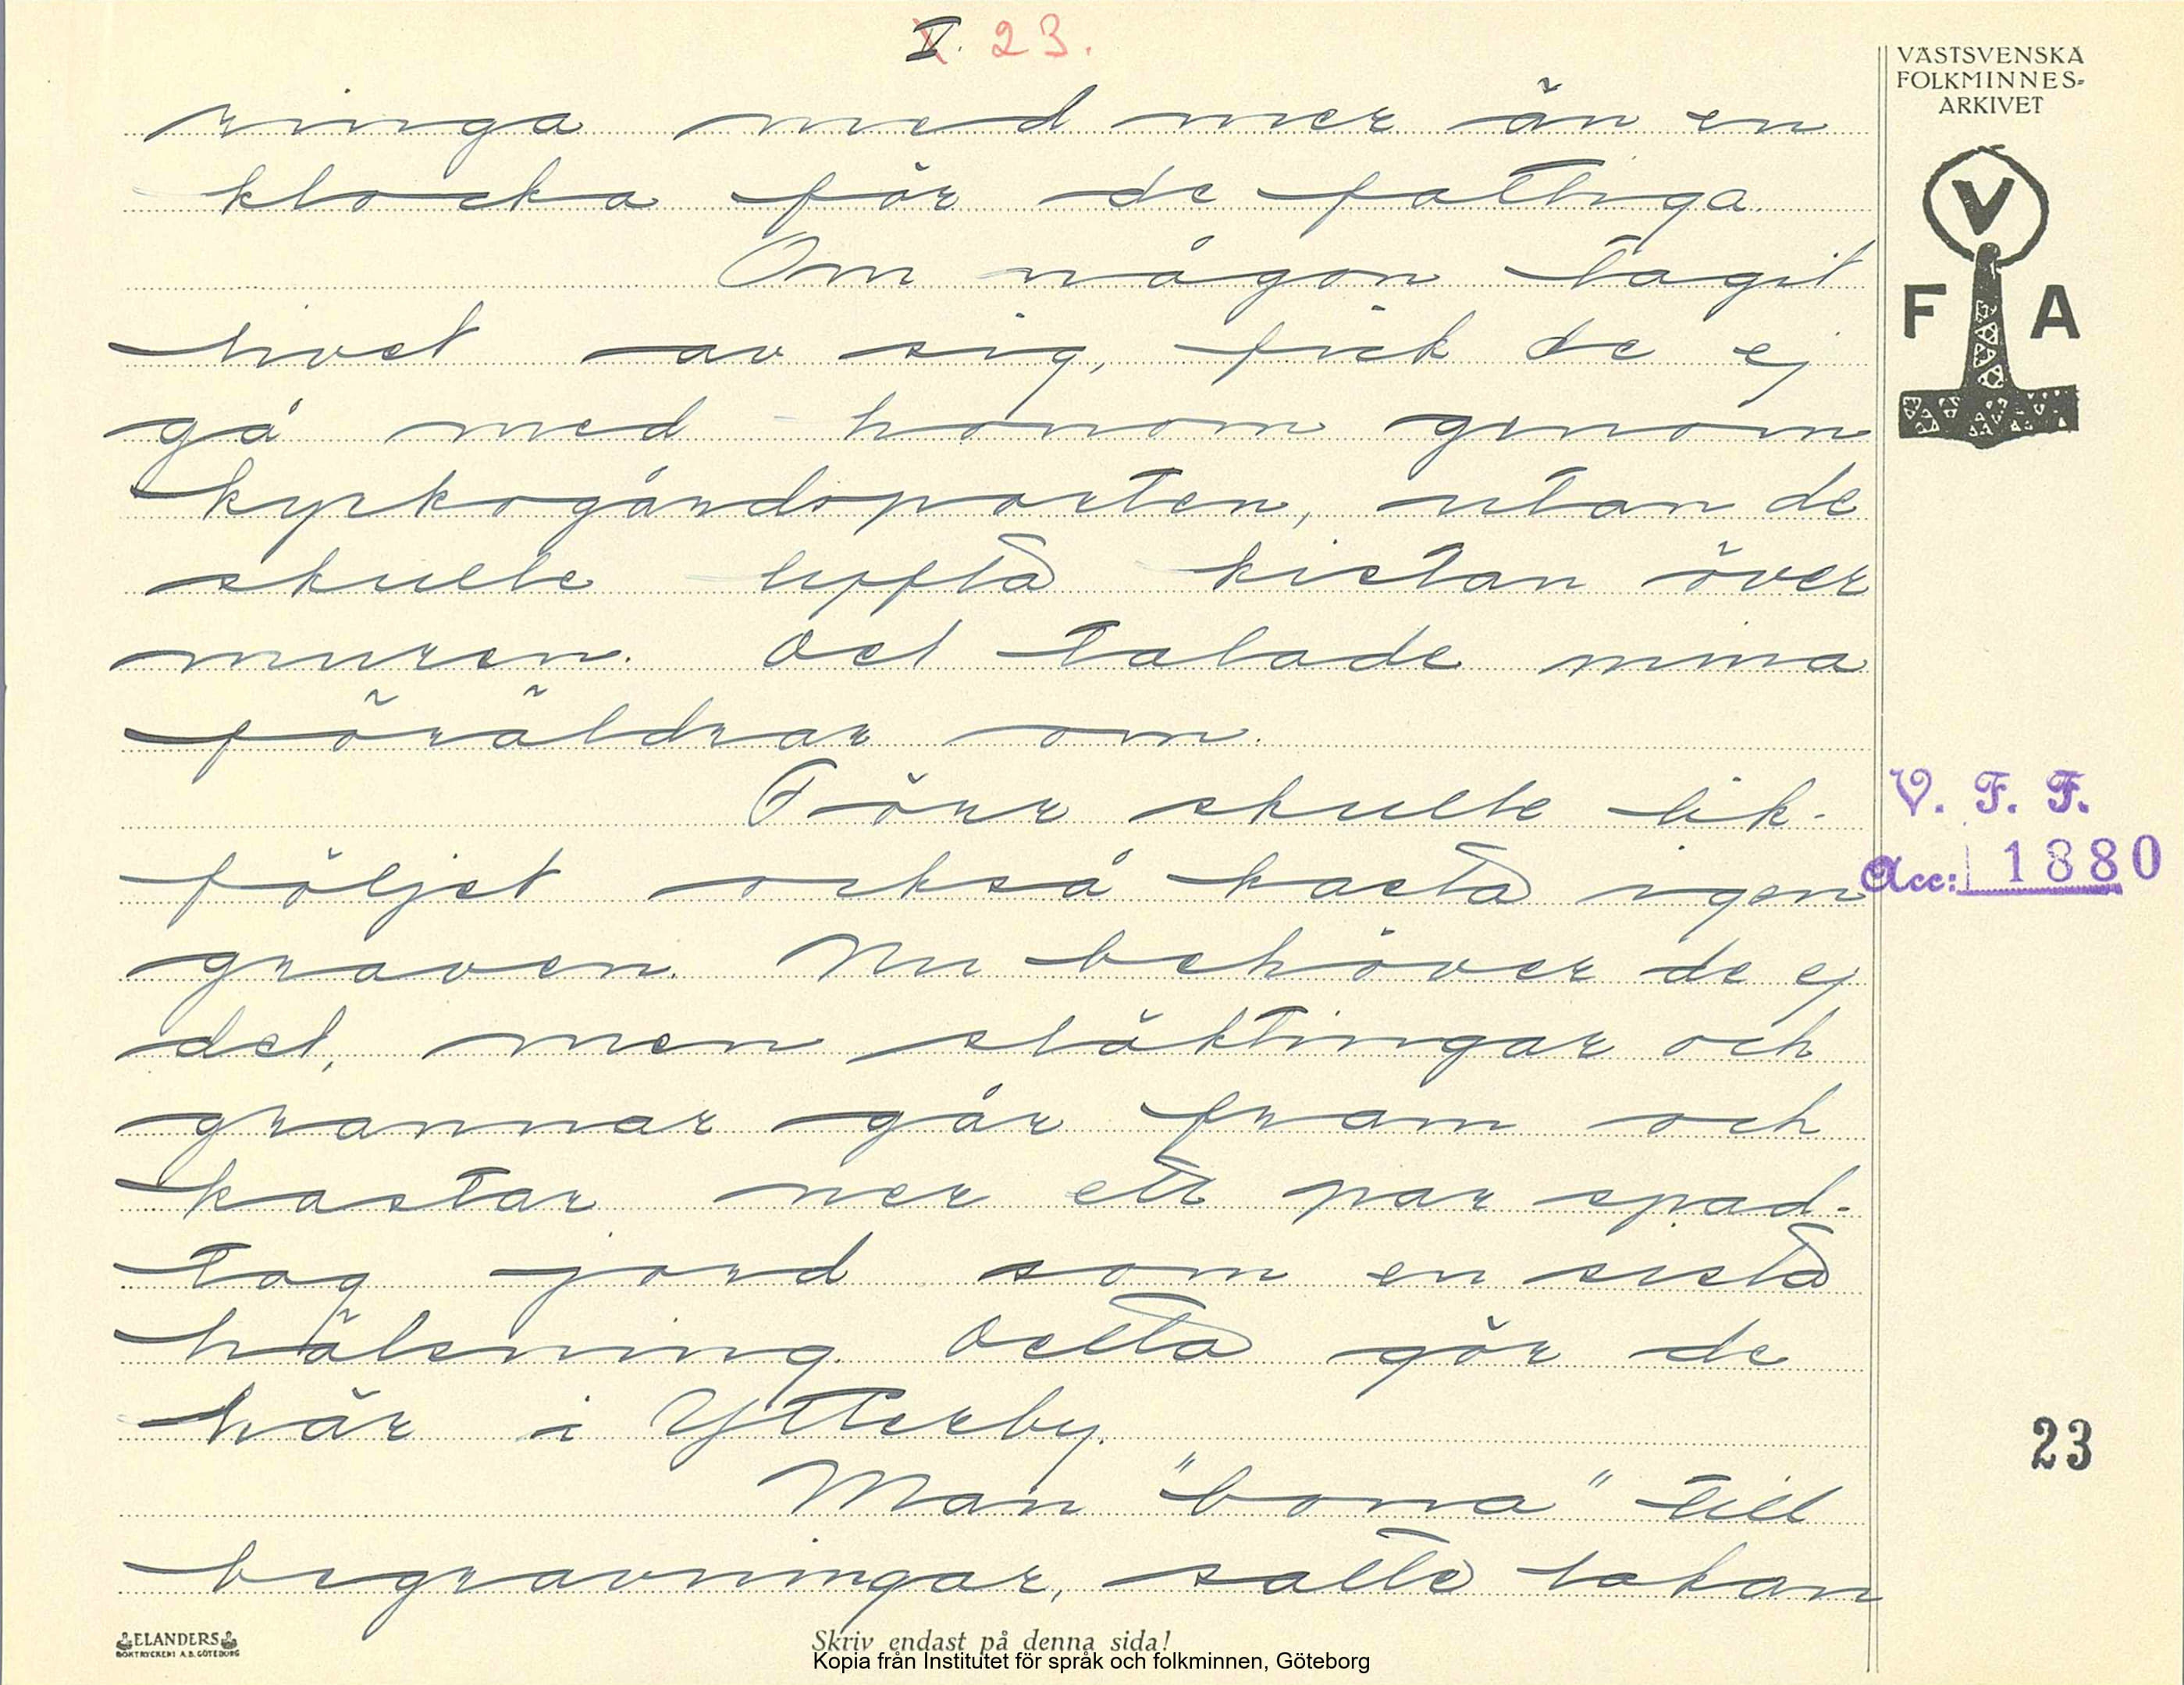 V. 23.
VÄSTSVENSKA
FOLKMINNES-
ARKIVET
V
F A
ringa med mer än en
klocka för de fattiga.
Om någon tagit
livet av sig, fick de ej
gå med honom genom
kyrkogårdsporten, utan de
skulle lyfta kistan över
muren. Det talade mina
föräldrar om.
Förr skulle lik-
följet också kasta igen
graven. Nu behöver de ej
det, men släktingar och
grannar går fram och
kastar ner ett par spad-
tag jord som en sista
hälsning. Detta gör de
här i Ytterby.
Man "bona" till
begravningar, satte lakan
V. F. F.
Acc: 1880
23
ELANDERS
BOKTRYCKERI A.B. GÖTEBORG
Skriv endast på denna sida!
Kopia från Institutet för språk och folkminnen, Göteborg